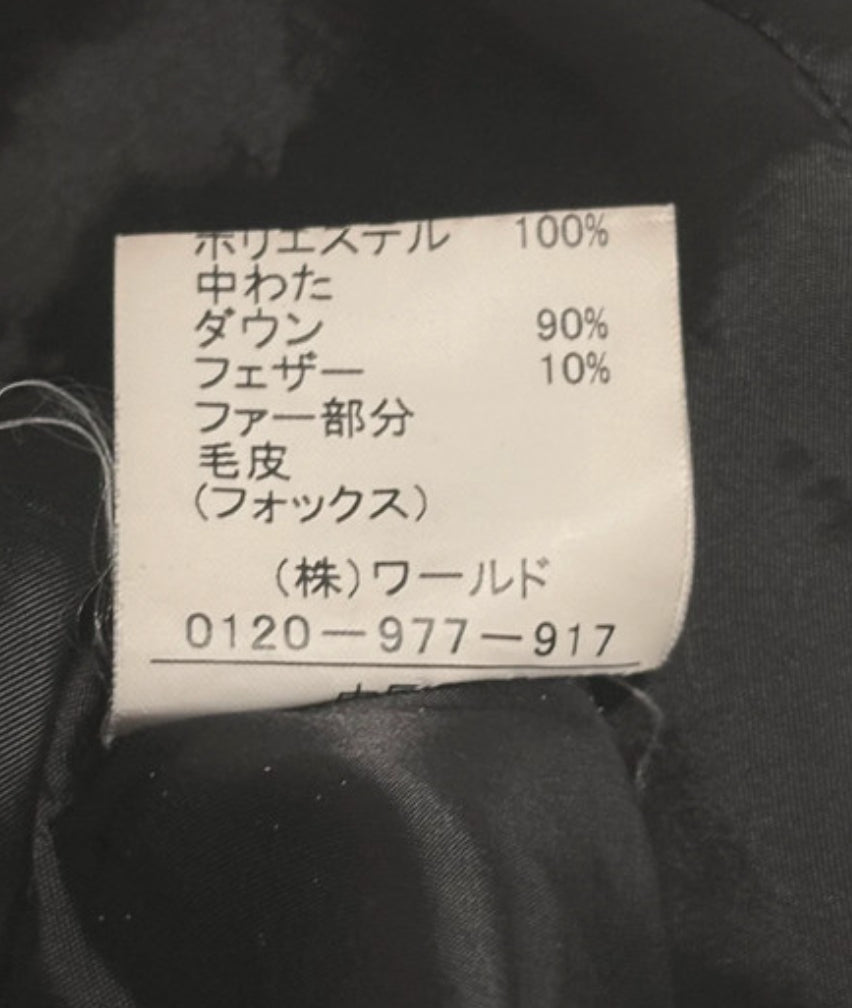 ポリエステル 100%
中わた
ダウン 90%
フェザー 10%
ファー部分
毛皮
(フォックス)
(株)ワールド
0120-977-917